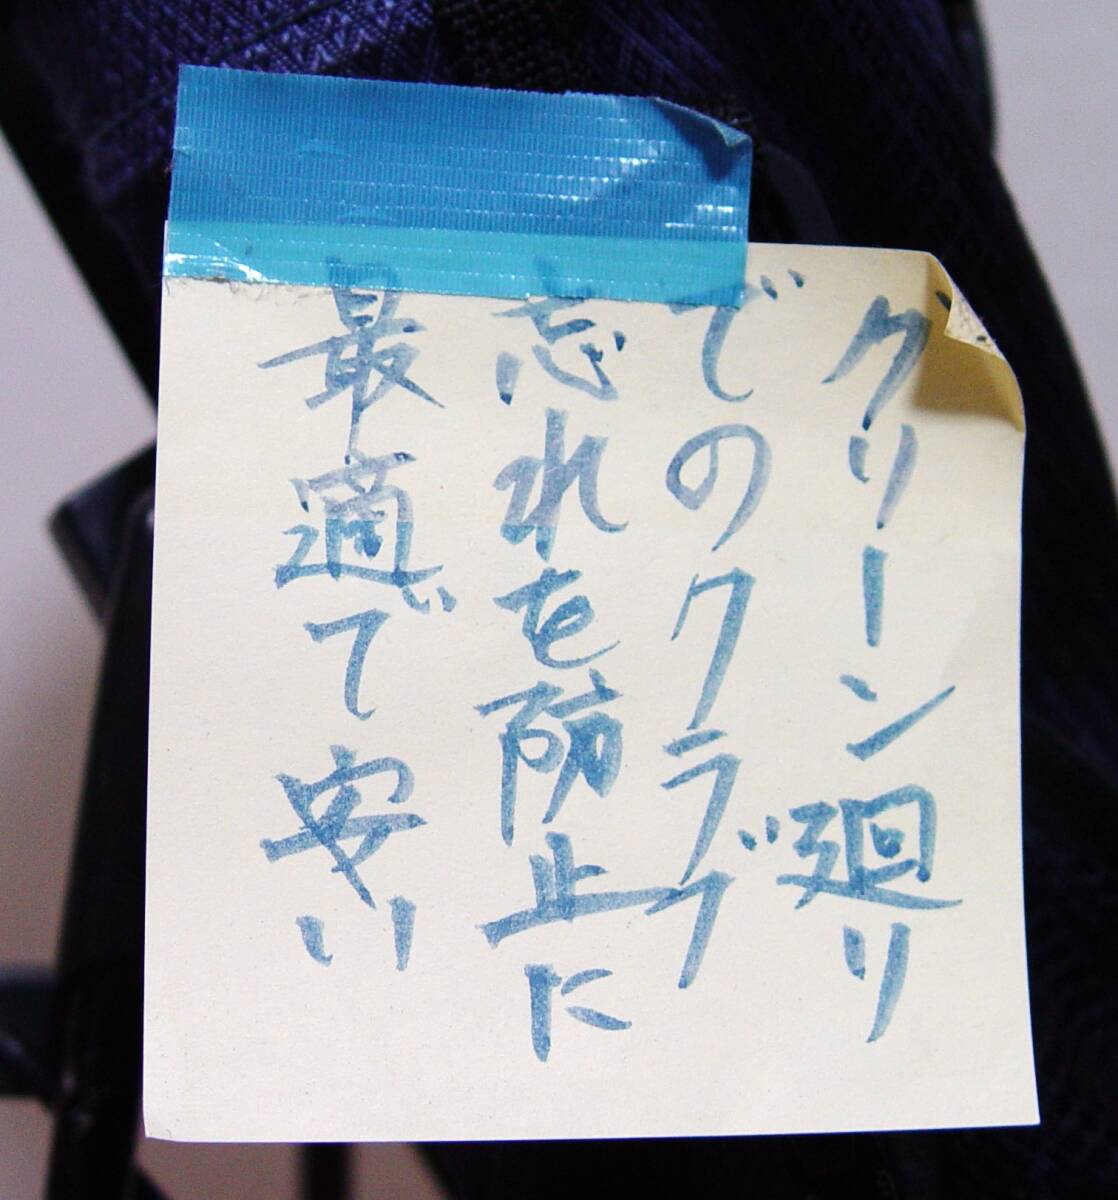 グリーン廻り
でのクラブ
忘れを防止に
最適で安い